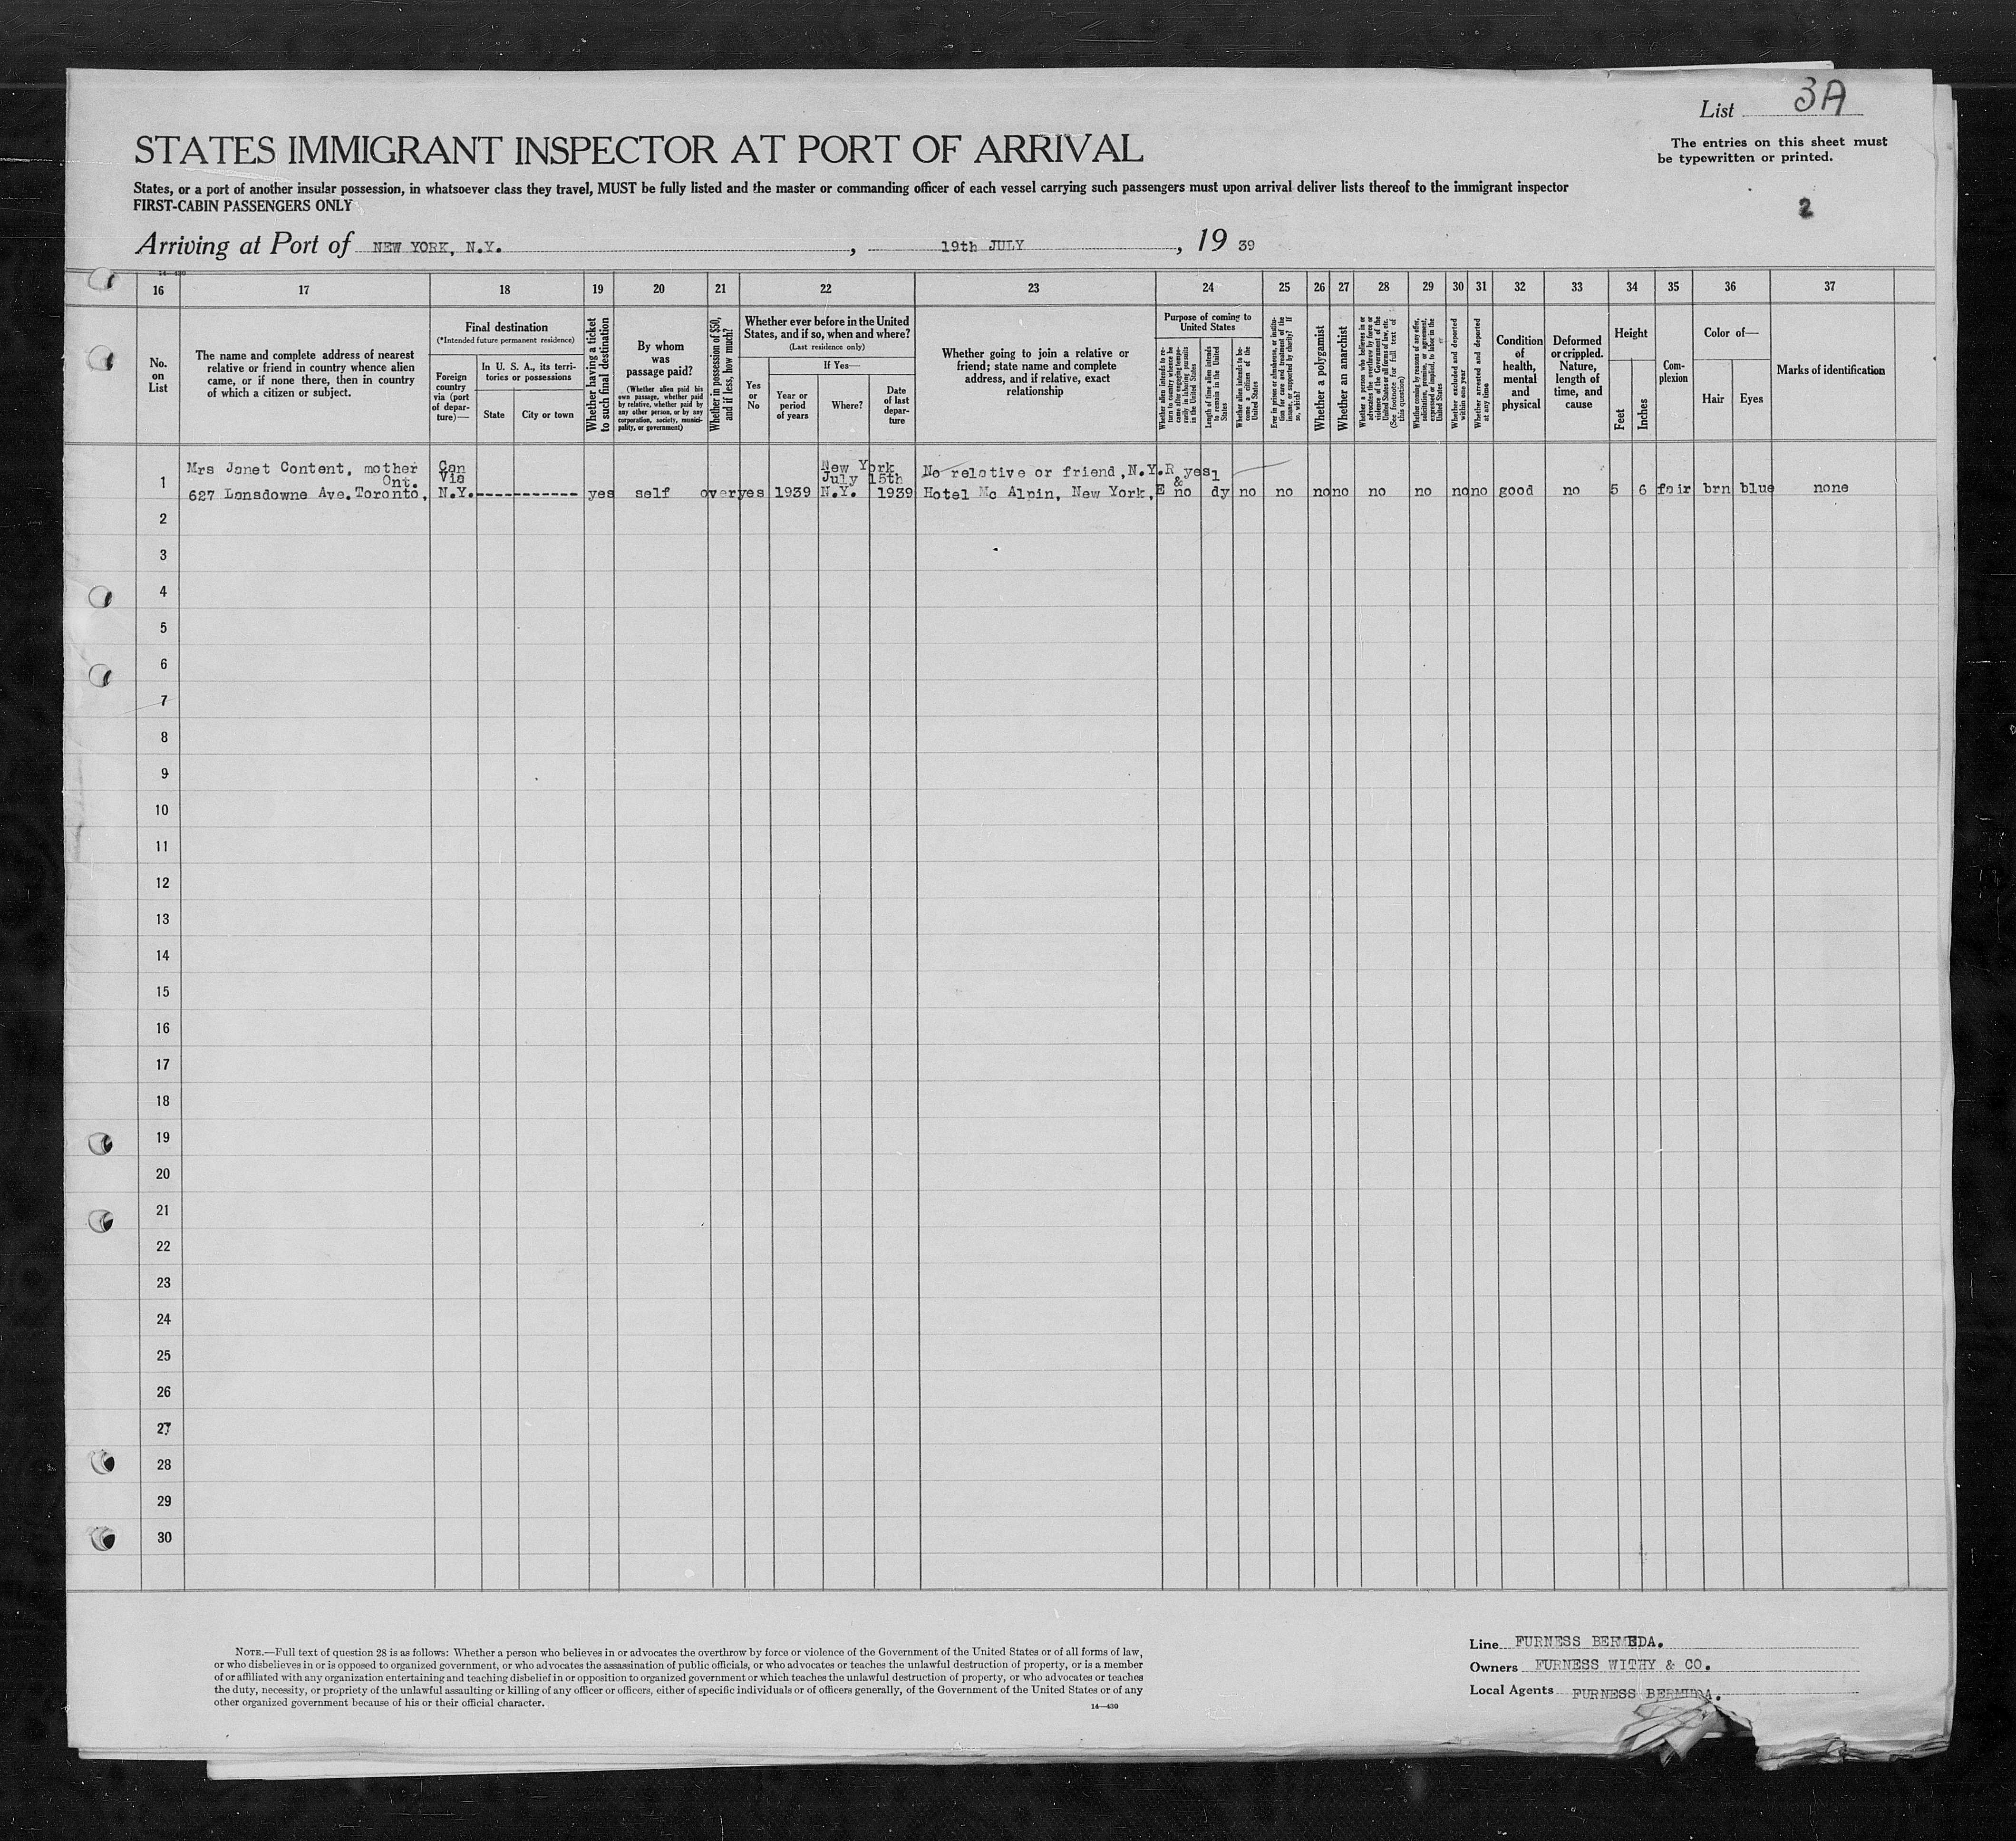 List 3A
The entries on this sheet must
be typewritten or printed.
2
STATES IMMIGRANT INSPECTOR AT PORT OF ARRIVAL
States, or a port of another insular possession, in whatsoever class they travel, MUST be fully listed and the master or commanding officer of each vessel carrying such passengers must upon arrival deliver lists thereof to the immigrant inspector
FIRST-CABIN PASSENGERS ONLY
Arriving at Port of NEW YORK, N.Y. , 19th JULY , 19 39
14—430
16 17 18 19 20 21 22 23 24 25 26 27 28 29 30 31 32 33 34 35 36 37
No.
on
List
The name and complete address of nearest
relative or friend in country whence alien
came, or if none there, then in country
of which a citizen or subject.
Final destination
(*Intended future permanent residence)
Foreign
country
via (port
of depar-
ture)—
In U. S. A., its terri-
tories or possessions
State
City or town
Whether having a ticket
to such final destination
By whom
was
passage paid?
(Whether alien paid his
own passage, whether paid
by relative, whether paid by
any other person, or by any
corporation, society, munici-
pality, or government)
Whether in possession of $50,
and if less, how much?
Whether ever before in the United
States, and if so, when and where?
(Last residence only)
Yes
or
No
If Yes—
Year or
period
of years
Where?
Date
of last
depar-
ture
Whether going to join a relative or
friend; state name and complete
address, and if relative, exact
relationship
Purpose of coming to
United States
Whether alien intends to re-
turn to country whence he
came after engaging tempo-
rarily in laboring pursuits
in the United States
Length of time alien intends
to remain in the United
States
Whether alien intends to be-
come a citizen of the
United States
Ever in prison or almshouse, or institu-
tion for care and treatment of the
insane, or supported by charity? If
so, which?
Whether a polygamist
Whether an anarchist
Whether a person who believes in or
advocates the overthrow by force or
violence of the Government of the
United States or all forms of law, etc.
(See footnote for full text of
this question)
Whether coming by reasons of any offer,
solicitation, promise, or agreement,
expressed or implied, to labor in the
United States
Whether excluded and deported
within one year
Whether arrested and deported
at any time
Condition
of
health,
mental
and
physical
Deformed
or crippled.
Nature,
length of
time, and
cause
Height
Feet
Inches
Com-
plexion
Color of—
Hair
Eyes
Marks of identification
1
Mrs Janet Content, mother
Ont.
627 Lansdowne Ave. Toronto,
Can
Via
N.Y.------------
yes self over yes 1939
New York
July 15th
N.Y. 1939
No relative or friend, N.Y. R yes 1
&
Hotel Mc Alpin, New York, E no dy no no no no no no no no good no 5 6 fair brn blue none
2
3
4
5
6
7
8
9
10
11
12
13
14
15
16
17
18
19
20
21
22
23
24
25
26
27
28
29
30
NOTE.—Full text of question 28 is as follows: Whether a person who believes in or advocates the overthrow by force or violence of the Government of the United States or of all forms of law,
or who disbelieves in or is opposed to organized government, or who advocates the assassination of public officials, or who advocates or teaches the unlawful destruction of property, or is a member
of or affiliated with any organization entertaining and teaching disbelief in or opposition to organized government or which teaches the unlawful destruction of property, or who advocates or teaches
the duty, necessity, or propriety of the unlawful assaulting or killing of any officer or officers, either of specific individuals or of officers generally, of the Government of the United States or of any
other organized government because of his or their official character.
14—430
Line FURNESS BERMUDA.
Owners FURNESS WITHY & CO.
Local Agents FURNESS BERMUDA.